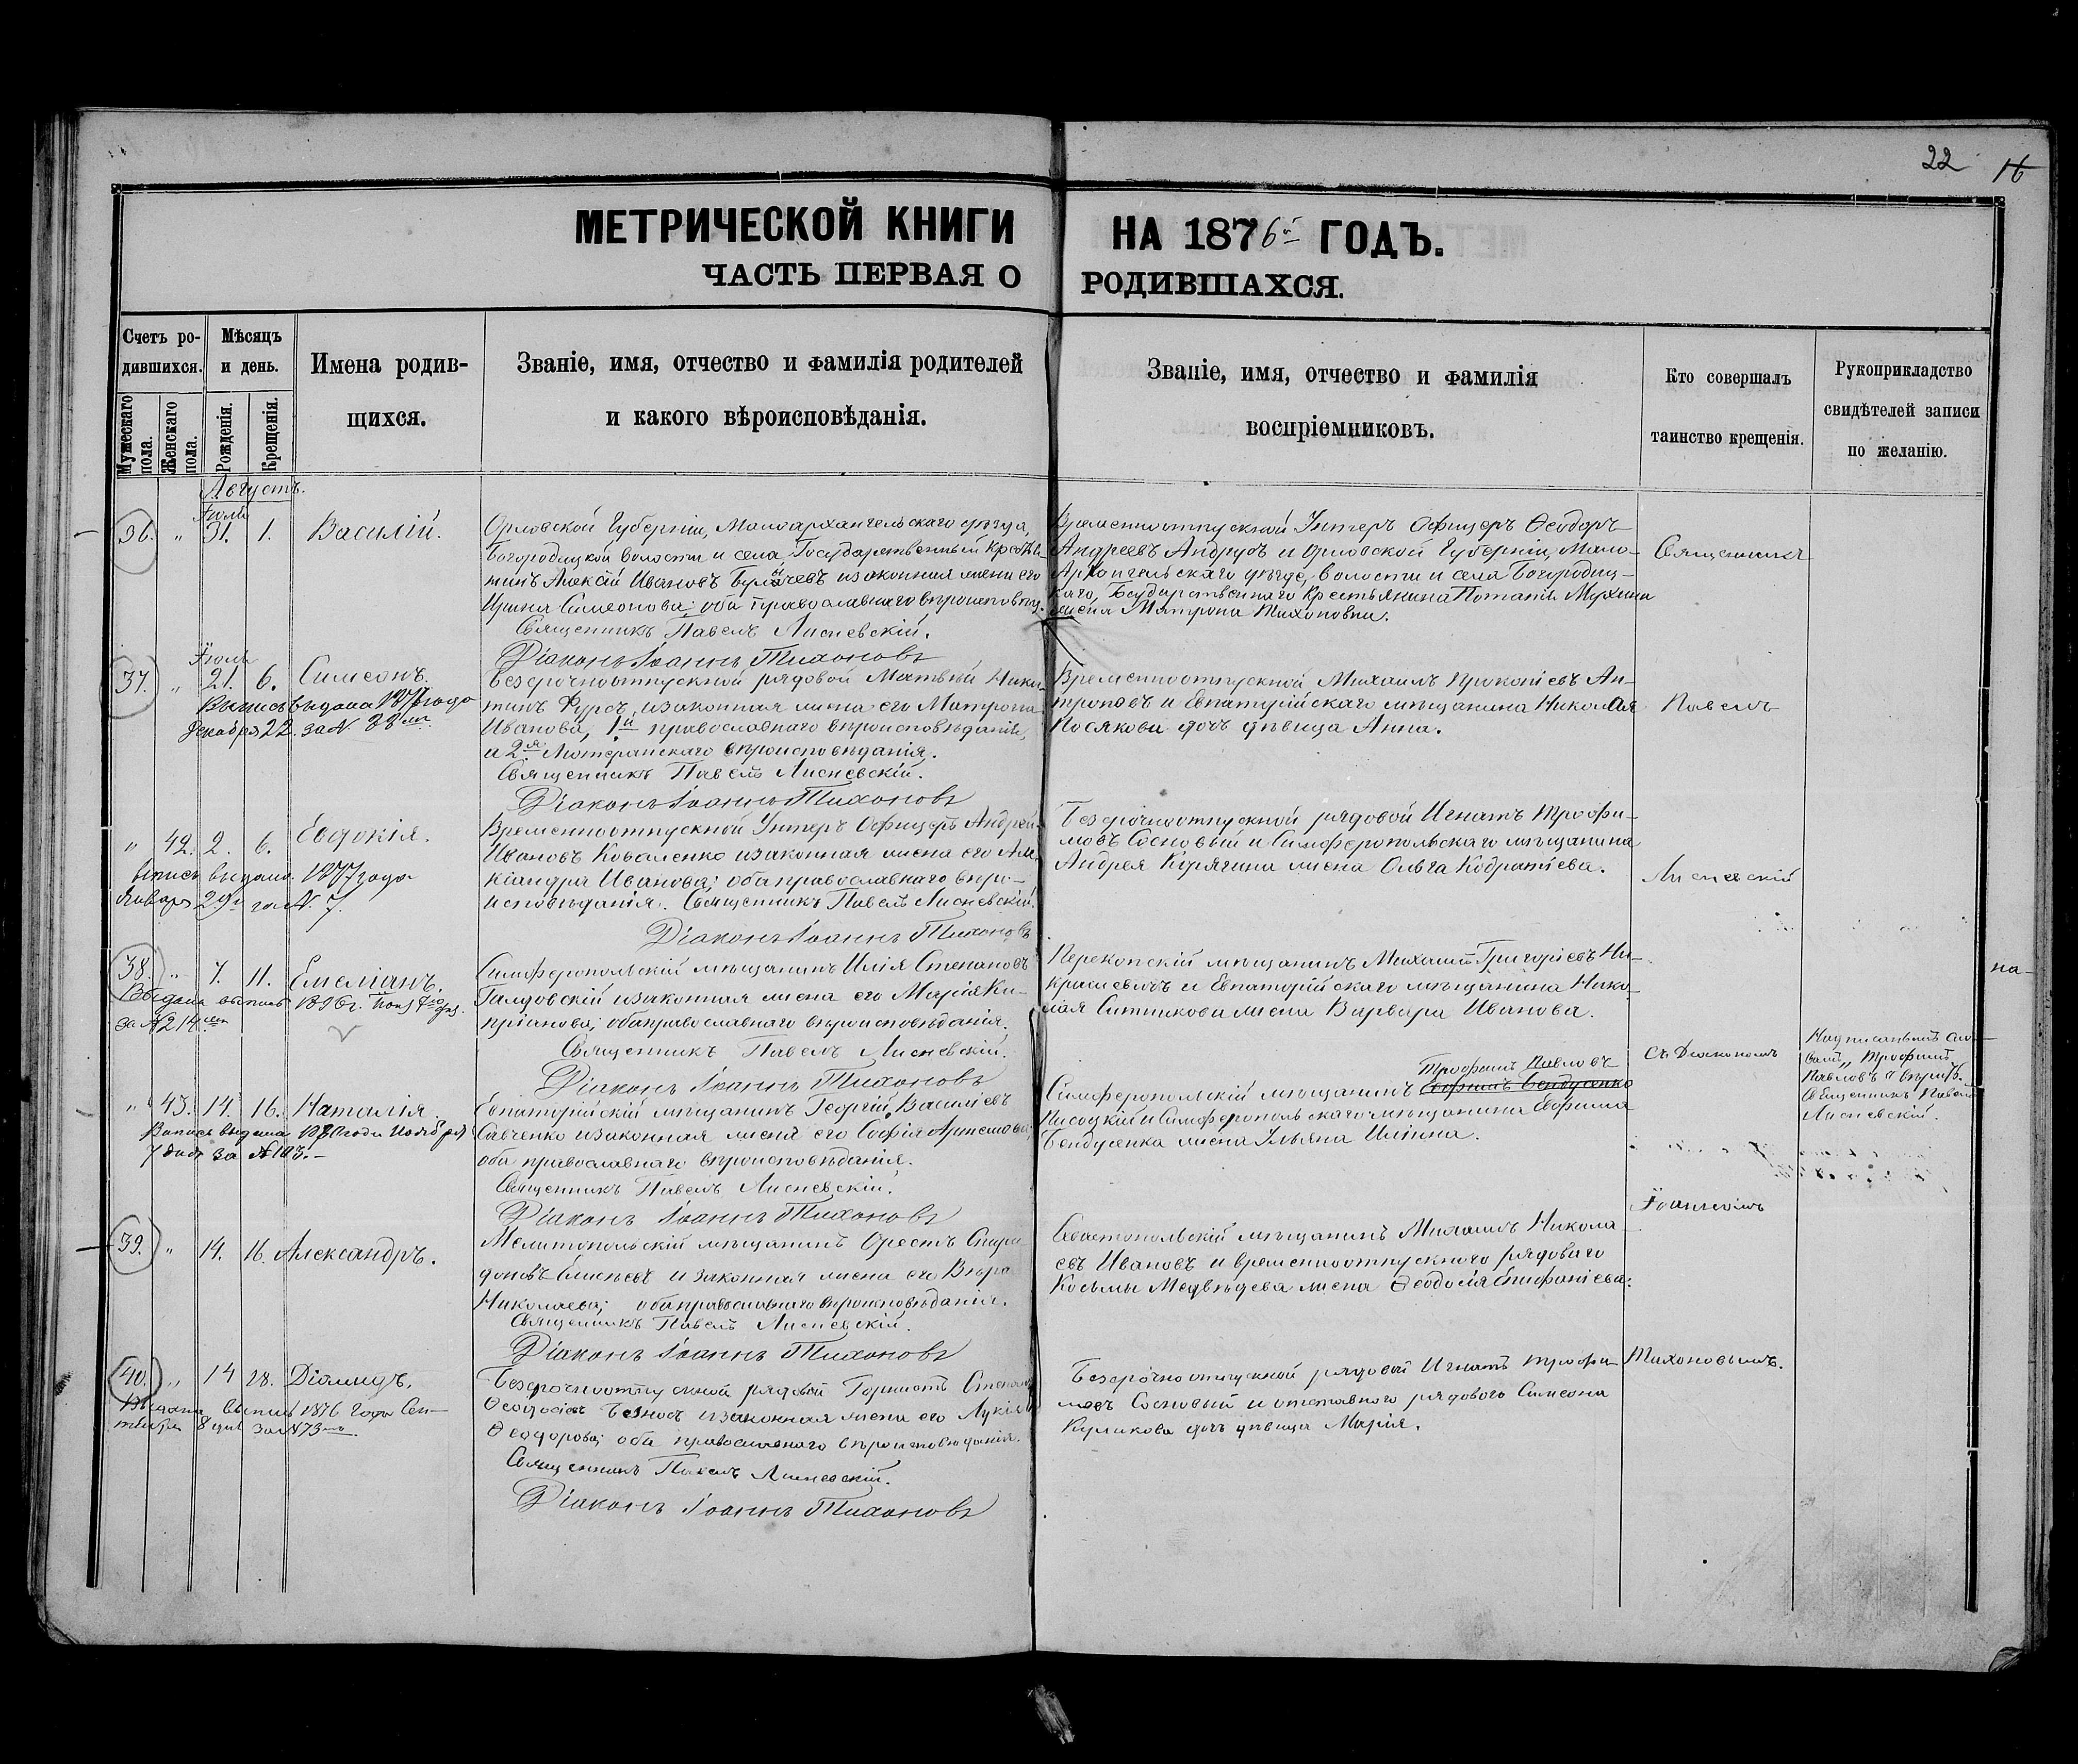 22 16
МЕТРИЧЕСКОЙ КНИГИ НА 1876й ГОДЪ.
ЧАСТЬ ПЕРВАЯ О РОДИВШАХСЯ.
Счетъ ро-
дившихся.
Мужескаго пола.
Женскаго пола.
Мѣсяцъ
и день.
Рожденія.
Крещенія.
Имена родив-
щихся.
Званіе, имя, отчество и фамилія родителей
и какого вѣроисповѣданія.
Званіе, имя, отчество и фамилія
воспріемниковъ.
Кто совершалъ
таинство крещенія.
Рукоприкладство
свидѣтелей записи
по желанію.
Августъ.
Іюль
36. " 31. 1. Василій.
Орловской Губерніи, Малоархангельскаго уѣзда,
Богородицкой волости и села Государственный кресть-
нинъ Алексій Ивановъ и законная жена его
Ирина Симеонова; оба православнаго вѣроисповѣд.
Священникъ Павелъ Лисневскій.
Діаконъ Іоаннъ Тихоновъ
Временноотпускной Унтеръ Офицеръ Ѳеодоръ
Андреевъ Андрусъ и Орловской Губерніи, Мало-
Архангельскаго уѣзда, волости и села Богородиц-
каго, Государственнаго крестьянина Потапія Мухина
жена Матрона Тихоновна.
Священникъ
Іюль
37. " 21. 6. Симеонъ.
Выпись выдана 1877 года
Декабря 22. за N. 88
Безсрочноотпускной рядовой Матвѣй Ники-
тинъ Фурсъ, и законная жена его Матрона
Иванова, 1й православнаго вѣроисповѣданія,
а 2я Лютеранскаго вѣроисповѣданія.
Священникъ Павелъ Лисневскій.
Діаконъ Іоаннъ Тихоновъ
Временноотпускной Михаилъ Прокопіевъ Ан-
троповъ и Евпаторійскаго мѣщанина Николая
Посякова дочь дѣвица Анна.
Павелъ
" 42. 2. 6. Евдокія.
выпись выдана 1877 года
Января 29 за N. 7.
Временноотпускной Унтеръ Офицеръ Андрей
Ивановъ Коваленко и законная жена его Але-
ксандра Иванова; оба православнаго вѣро-
исповѣданія. Священникъ Павелъ Лисневскій.
Діаконъ Іоаннъ Тихоновъ
Безсрочноотпускной рядовой Игнатъ Трофи-
мовъ Сосновый и Симферопольскаго мѣщанина
Андрея Корягина жена Ольга Кодратіева.
Лисневскій
38. " 7. 11. Емеліанъ.
Выдана выпись 1896 г.
за N 214
Симферопольскій мѣщанинъ Илія Степановъ
Галдовскій и законная жена его Марія Ки-
пріанова; оба православнаго вѣроисповѣданія.
Священникъ Павелъ Лисневскій.
Діаконъ Іоаннъ Тихоновъ
Перекопскій мѣщанинъ Михаилъ Григоріевъ Ни-
крашевичъ и Евпаторійскаго мѣщанина Нико-
лая Ситникова жена Варвара Иванова.
съ Діакономъ
Надписаннымъ сло-
вамъ „Трофимъ
Павловъ" вѣрить.
Священникъ Павелъ
Лисневскій.
на-
" 43. 14. 16. Наталія.
Выпись выдана года Ноября
7 дня за N 103.-
Евпаторійскій мѣщанинъ Георгій Василіевъ
Савченко и законная жена его Софія Артемова;
оба православнаго вѣроисповѣданія.
Священникъ Павелъ Лисневскій.
Діаконъ Іоаннъ Тихоновъ
Трофимъ Павловъ
Симферопольскій мѣщанинъ Евфимъ Бендусенко
Писоцкій и Симферопольскаго мѣщанина Евфима
Бендусенка жена Ульяна Иліина.
Іоанномъ
39. " 14. 16. Александръ.
Мелитопольскій мѣщанинъ Орестъ Спири-
доновъ Елисѣевъ и законная жена его Вѣра
Николаева; оба православнаго вѣроисповѣданія.
Священникъ Павелъ Лисневскій.
Діаконъ Іоаннъ Тихоновъ
Севастопольскій мѣщанинъ Михаилъ Никола-
евъ Ивановъ и временноотпускнаго рядоваго
Косьмы Медвѣдева жена Ѳеодосія Епифаніева.
Тихоновымъ.
40. " 14 28. Діамидъ.
Выдана выпись 1876 года Сен-
тября 8 дня за N 73
Безсрочноотпускной рядовой Горнистъ Степанъ
Ѳеодосіевъ и законная жена его Лукія
Ѳеодорова; оба православнаго вѣроисповѣданія.
Священникъ Павелъ Лисневскій.
Діаконъ Іоаннъ Тихоновъ
Безсрочноотпускной рядовой Игнатъ Трофи-
мовъ Сосновый и отставнаго рядоваго Симеона
Куликова дочь дѣвица Марія.